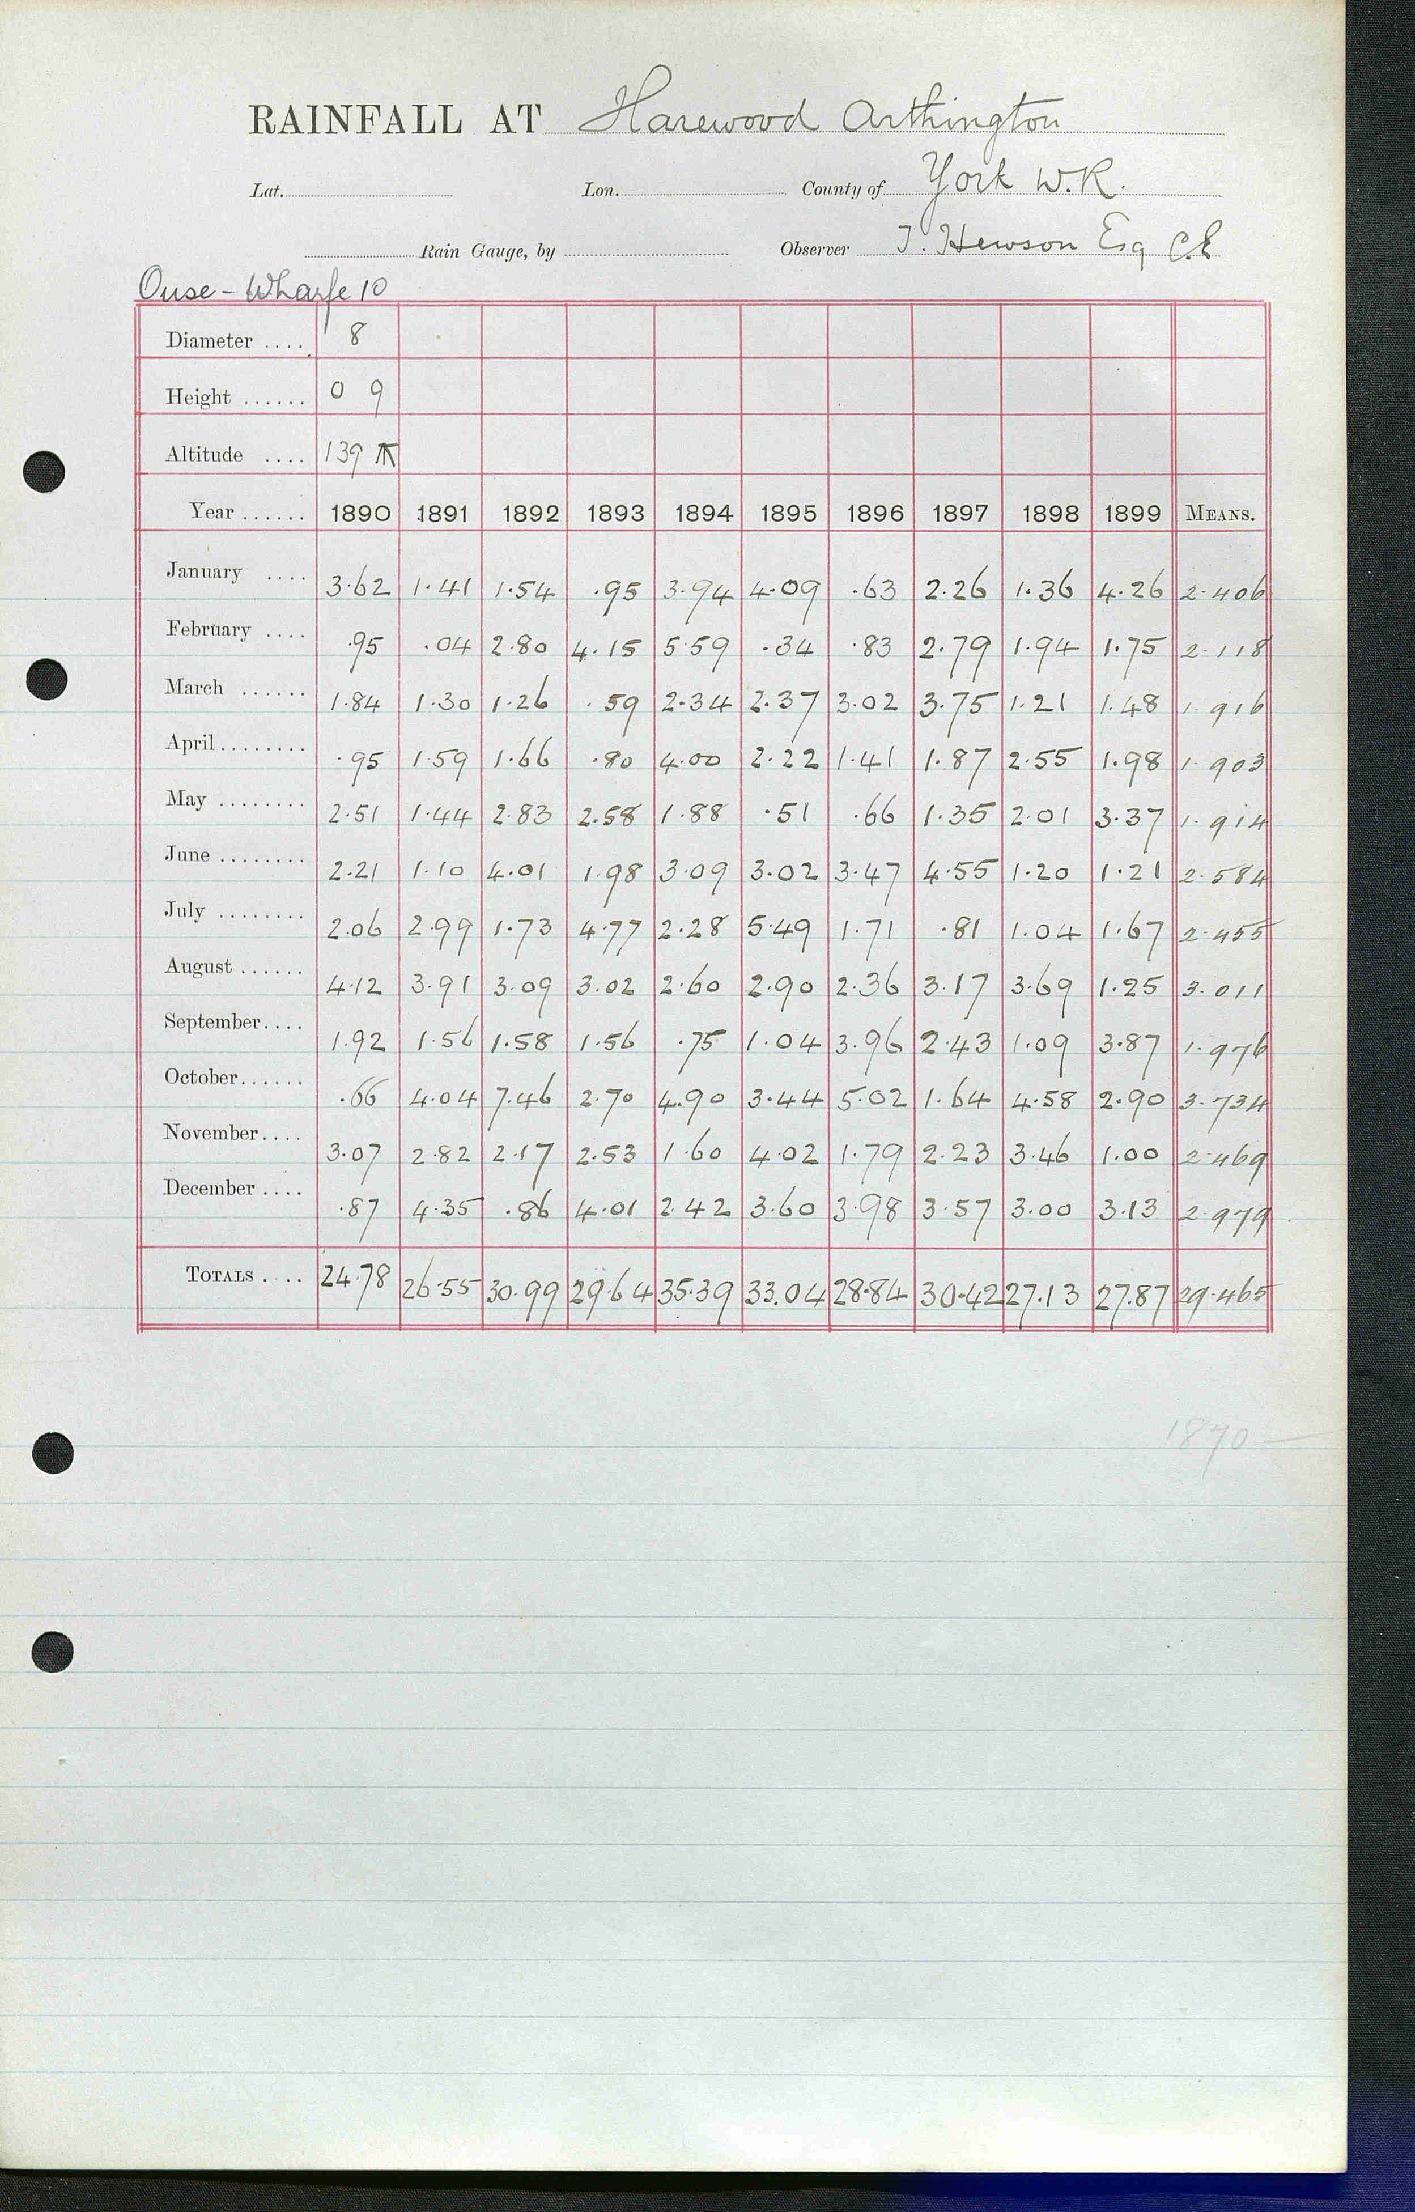 RAINFALL AT Harewood Arthington
Lat. Lon. County of York W.R.
Rain Gauge, by Observer T. Hewson Esq C.E
Ouse - Wharfe 10
Diameter .... 8
Height ...... 0 9
Altitude .... 139
Year ...... 1890 1891 1892 1893 1894 1895 1896 1897 1898 1899 MEANS.
January .... 3.62 1.41 1.54 .95 3.94 4.09 .63 2.26 1.36 4.26 2.406
February .... .95 .04 2.80 4.15 5.59 .34 .83 2.79 1.94 1.75 2.118
March ...... 1.84 1.30 1.26 .59 2.34 2.37 3.02 3.75 1.21 1.48 1.916
April ........ .95 1.59 1.66 .80 4.00 2.22 1.41 1.87 2.55 1.98 1.903
May ........ 2.51 1.44 2.83 2.58 1.88 .51 .66 1.35 2.01 3.37 1.914
June ........ 2.21 1.10 4.01 1.98 3.09 3.02 3.47 4.55 1.20 1.21 2.584
July ........ 2.06 2.99 1.73 4.77 2.28 5.49 1.71 .81 1.04 1.67 2.455
August ...... 4.12 3.91 3.09 3.02 2.60 2.90 2.36 3.17 3.69 1.25 3.011
September .... 1.92 1.56 1.58 1.56 .75 1.04 3.96 2.43 1.09 3.87 1.976
October ...... .66 4.04 7.46 2.70 4.90 3.44 5.02 1.64 4.58 2.90 3.734
November .... 3.07 2.82 2.17 2.53 1.60 4.02 1.79 2.23 3.46 1.00 2.469
December .... .87 4.35 .86 4.01 2.42 3.60 3.98 3.57 3.00 3.13 2.979
TOTALS .... 24.78 26.55 30.99 29.64 35.39 33.04 28.84 30.42 27.13 27.87 29.465
1870 —